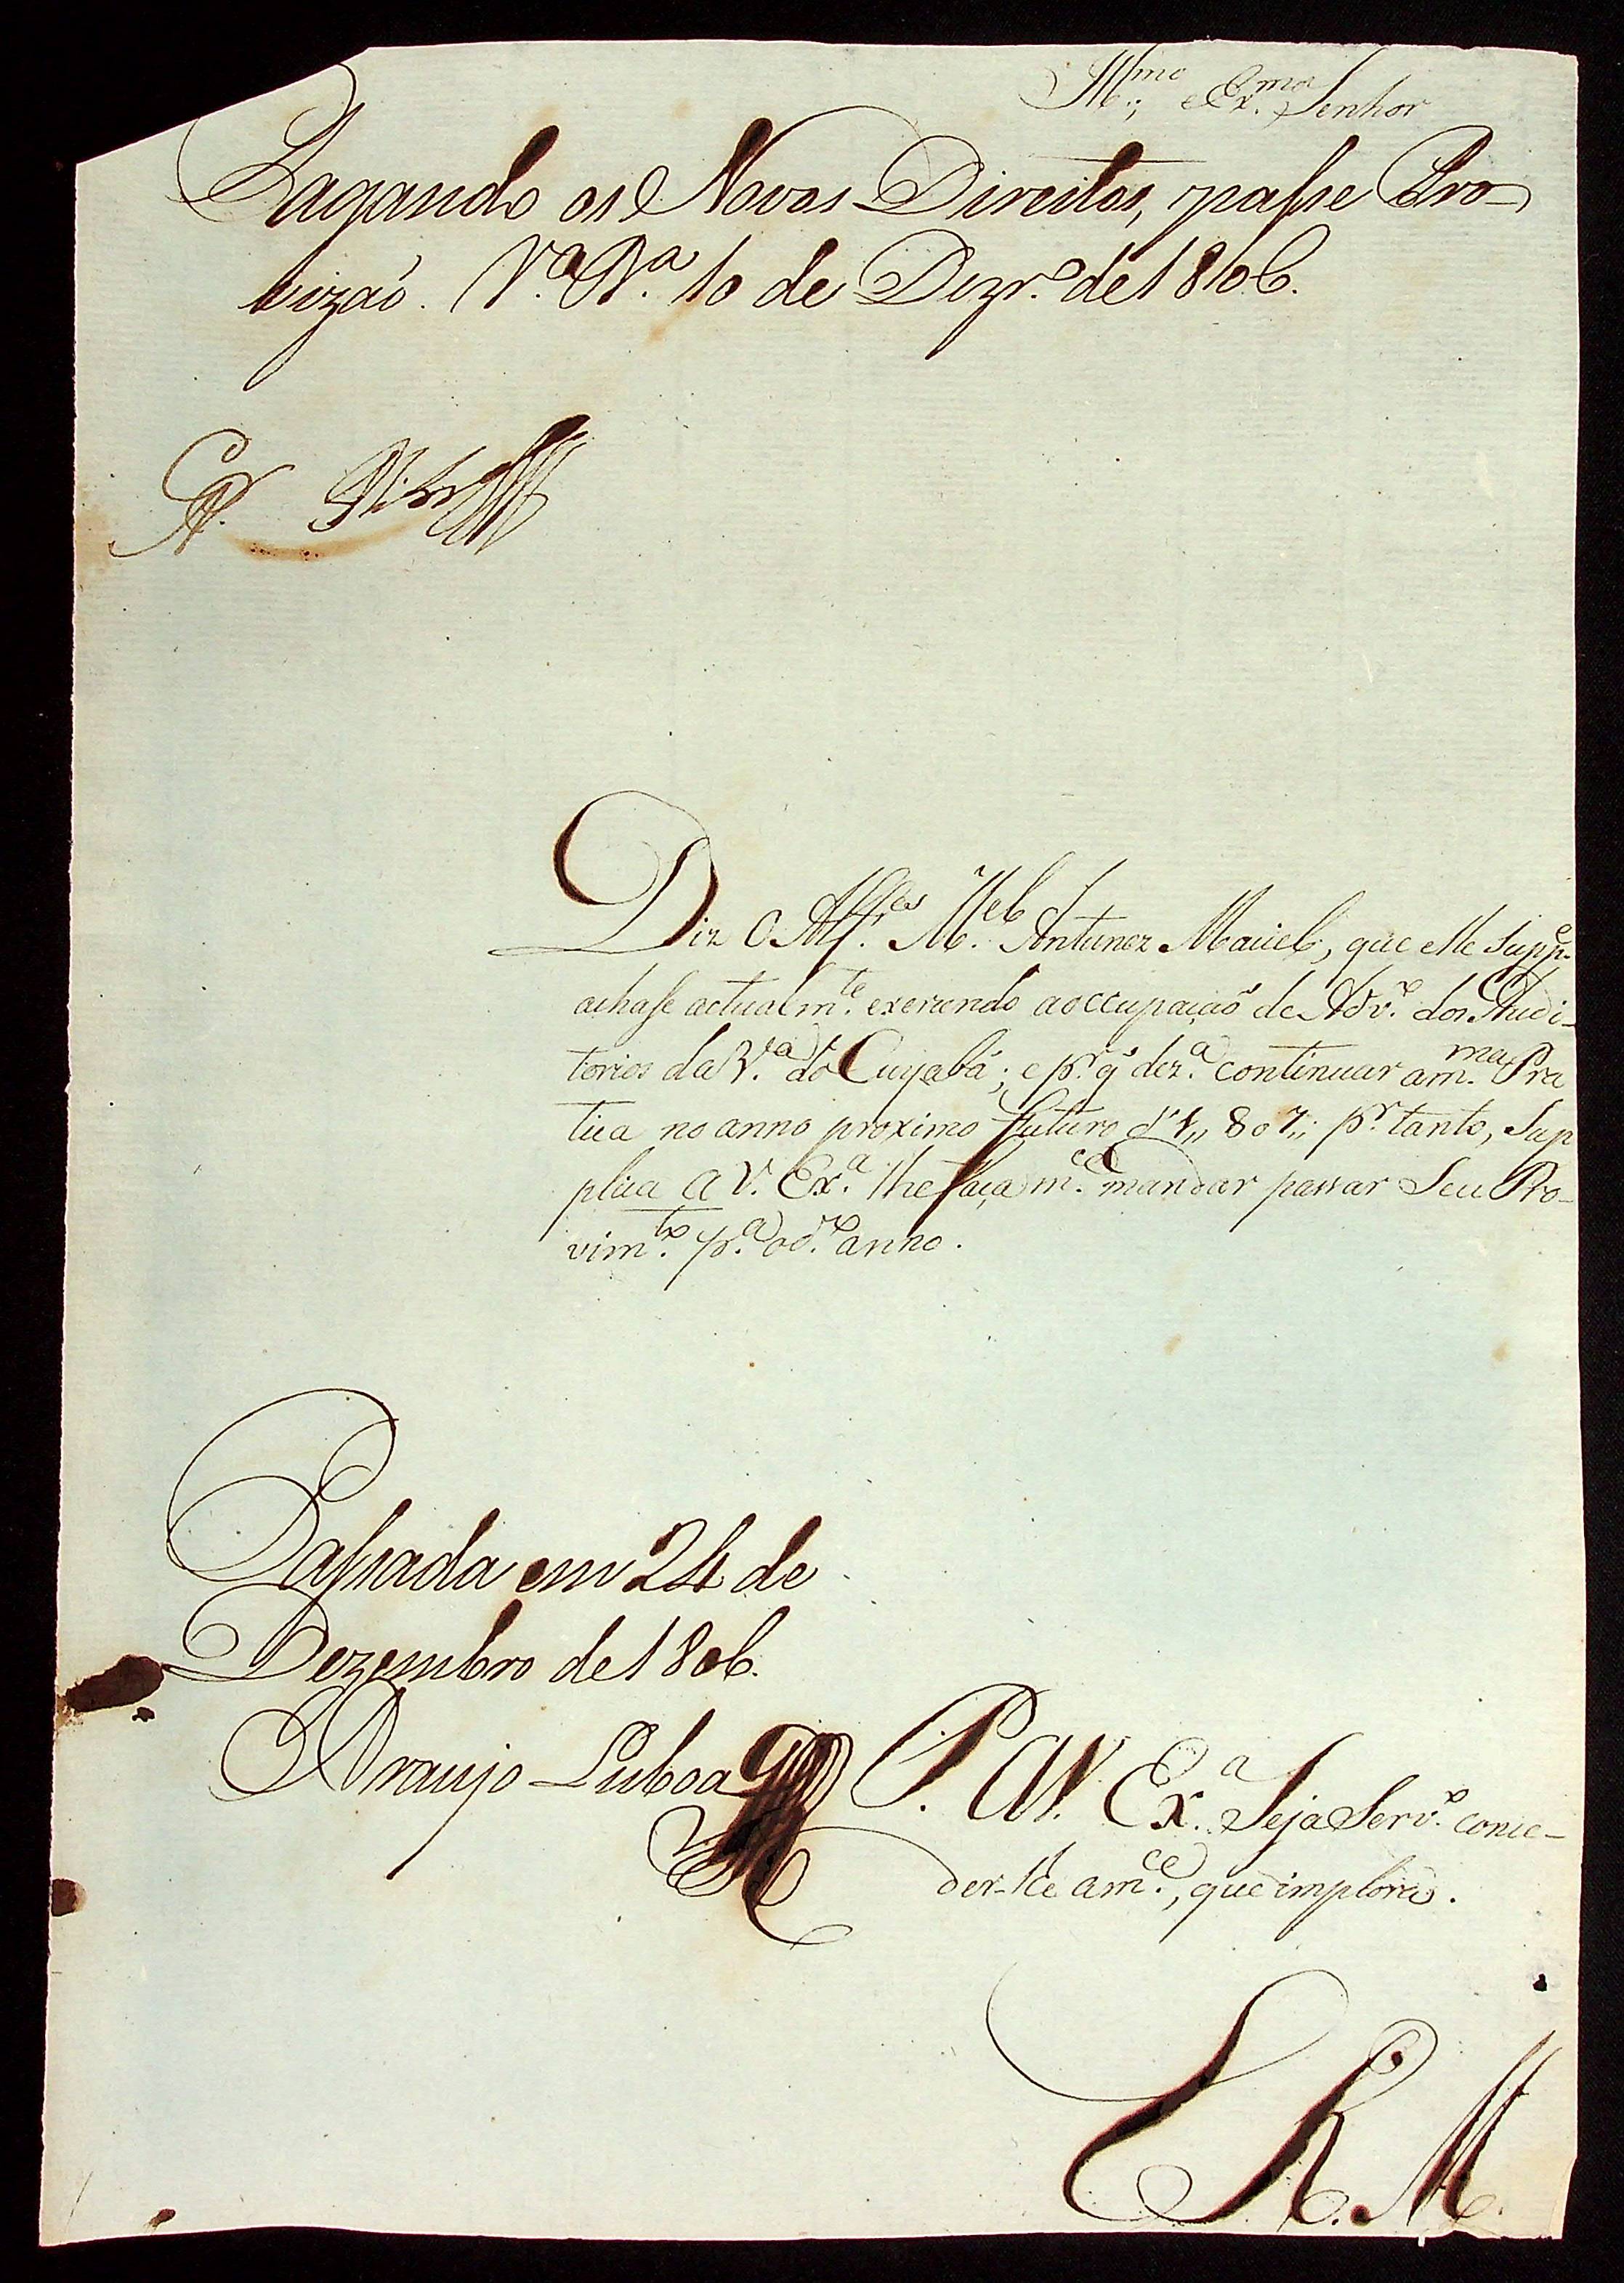 Ill.mo e Ex.mo Senhor
Pagando os Novos Direitos, passe Pro-
vizaõ. V.a B.a 10 de Dezr.o de 1806.
Diz O Alf.es M.el Antunez Maciel, que elle Supp.e
achase actualm.te exercendo a occupaçaõ de Adv.o dos Audi-
torios da V.a do Cuyabá; e p.r q̃ dez.a continuar a m.ma Pra
tica no anno proximo futuro d'1,,807,,; p.r tanto, Sup
plica a V. Ex.a lhe faça m.ce mandar passar Seu Pro-
vim.to p.a o d.o anno.
Passada em 24 de
Dezembro de 1806.
Araujo Lisboa
P. a V. Ex.a Seja Serv.o conce-
der-lhe a m.ce, que implora.
E. R. M.